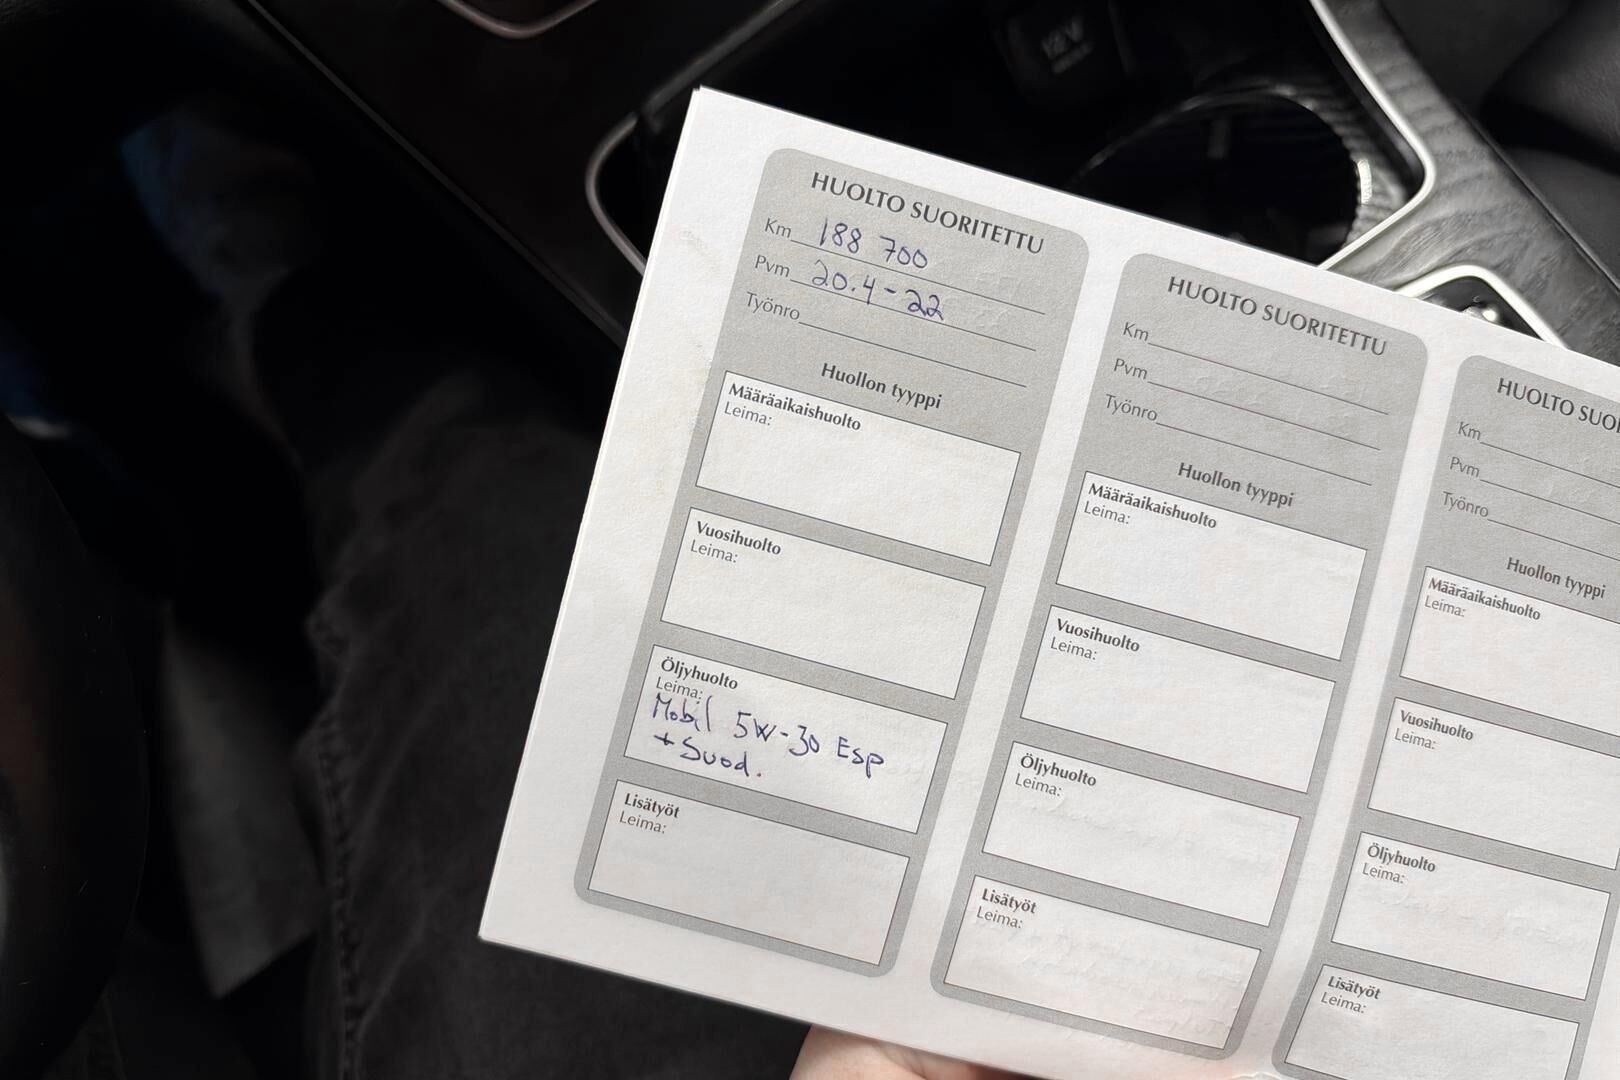 12V
HUOLTO SUORITETTU
Km 188 700
Pvm 20.4-22
Työnro
Huollon tyyppi
Määräaikaishuolto
Leima:
Vuosihuolto
Leima:
Öljyhuolto
Leima:
Mobil 5W-30 Esp
+ Suod.
Lisätyöt
Leima:
HUOLTO SUORITETTU
Km
Pvm
Työnro
Huollon tyyppi
Määräaikaishuolto
Leima:
Vuosihuolto
Leima:
Öljyhuolto
Leima:
Lisätyöt
Leima:
HUOLTO SUOR
Km
Pvm
Työnro
Huollon tyyppi
Määräaikaishuolto
Leima:
Vuosihuolto
Leima:
Öljyhuolto
Leima:
Lisätyöt
Leima: